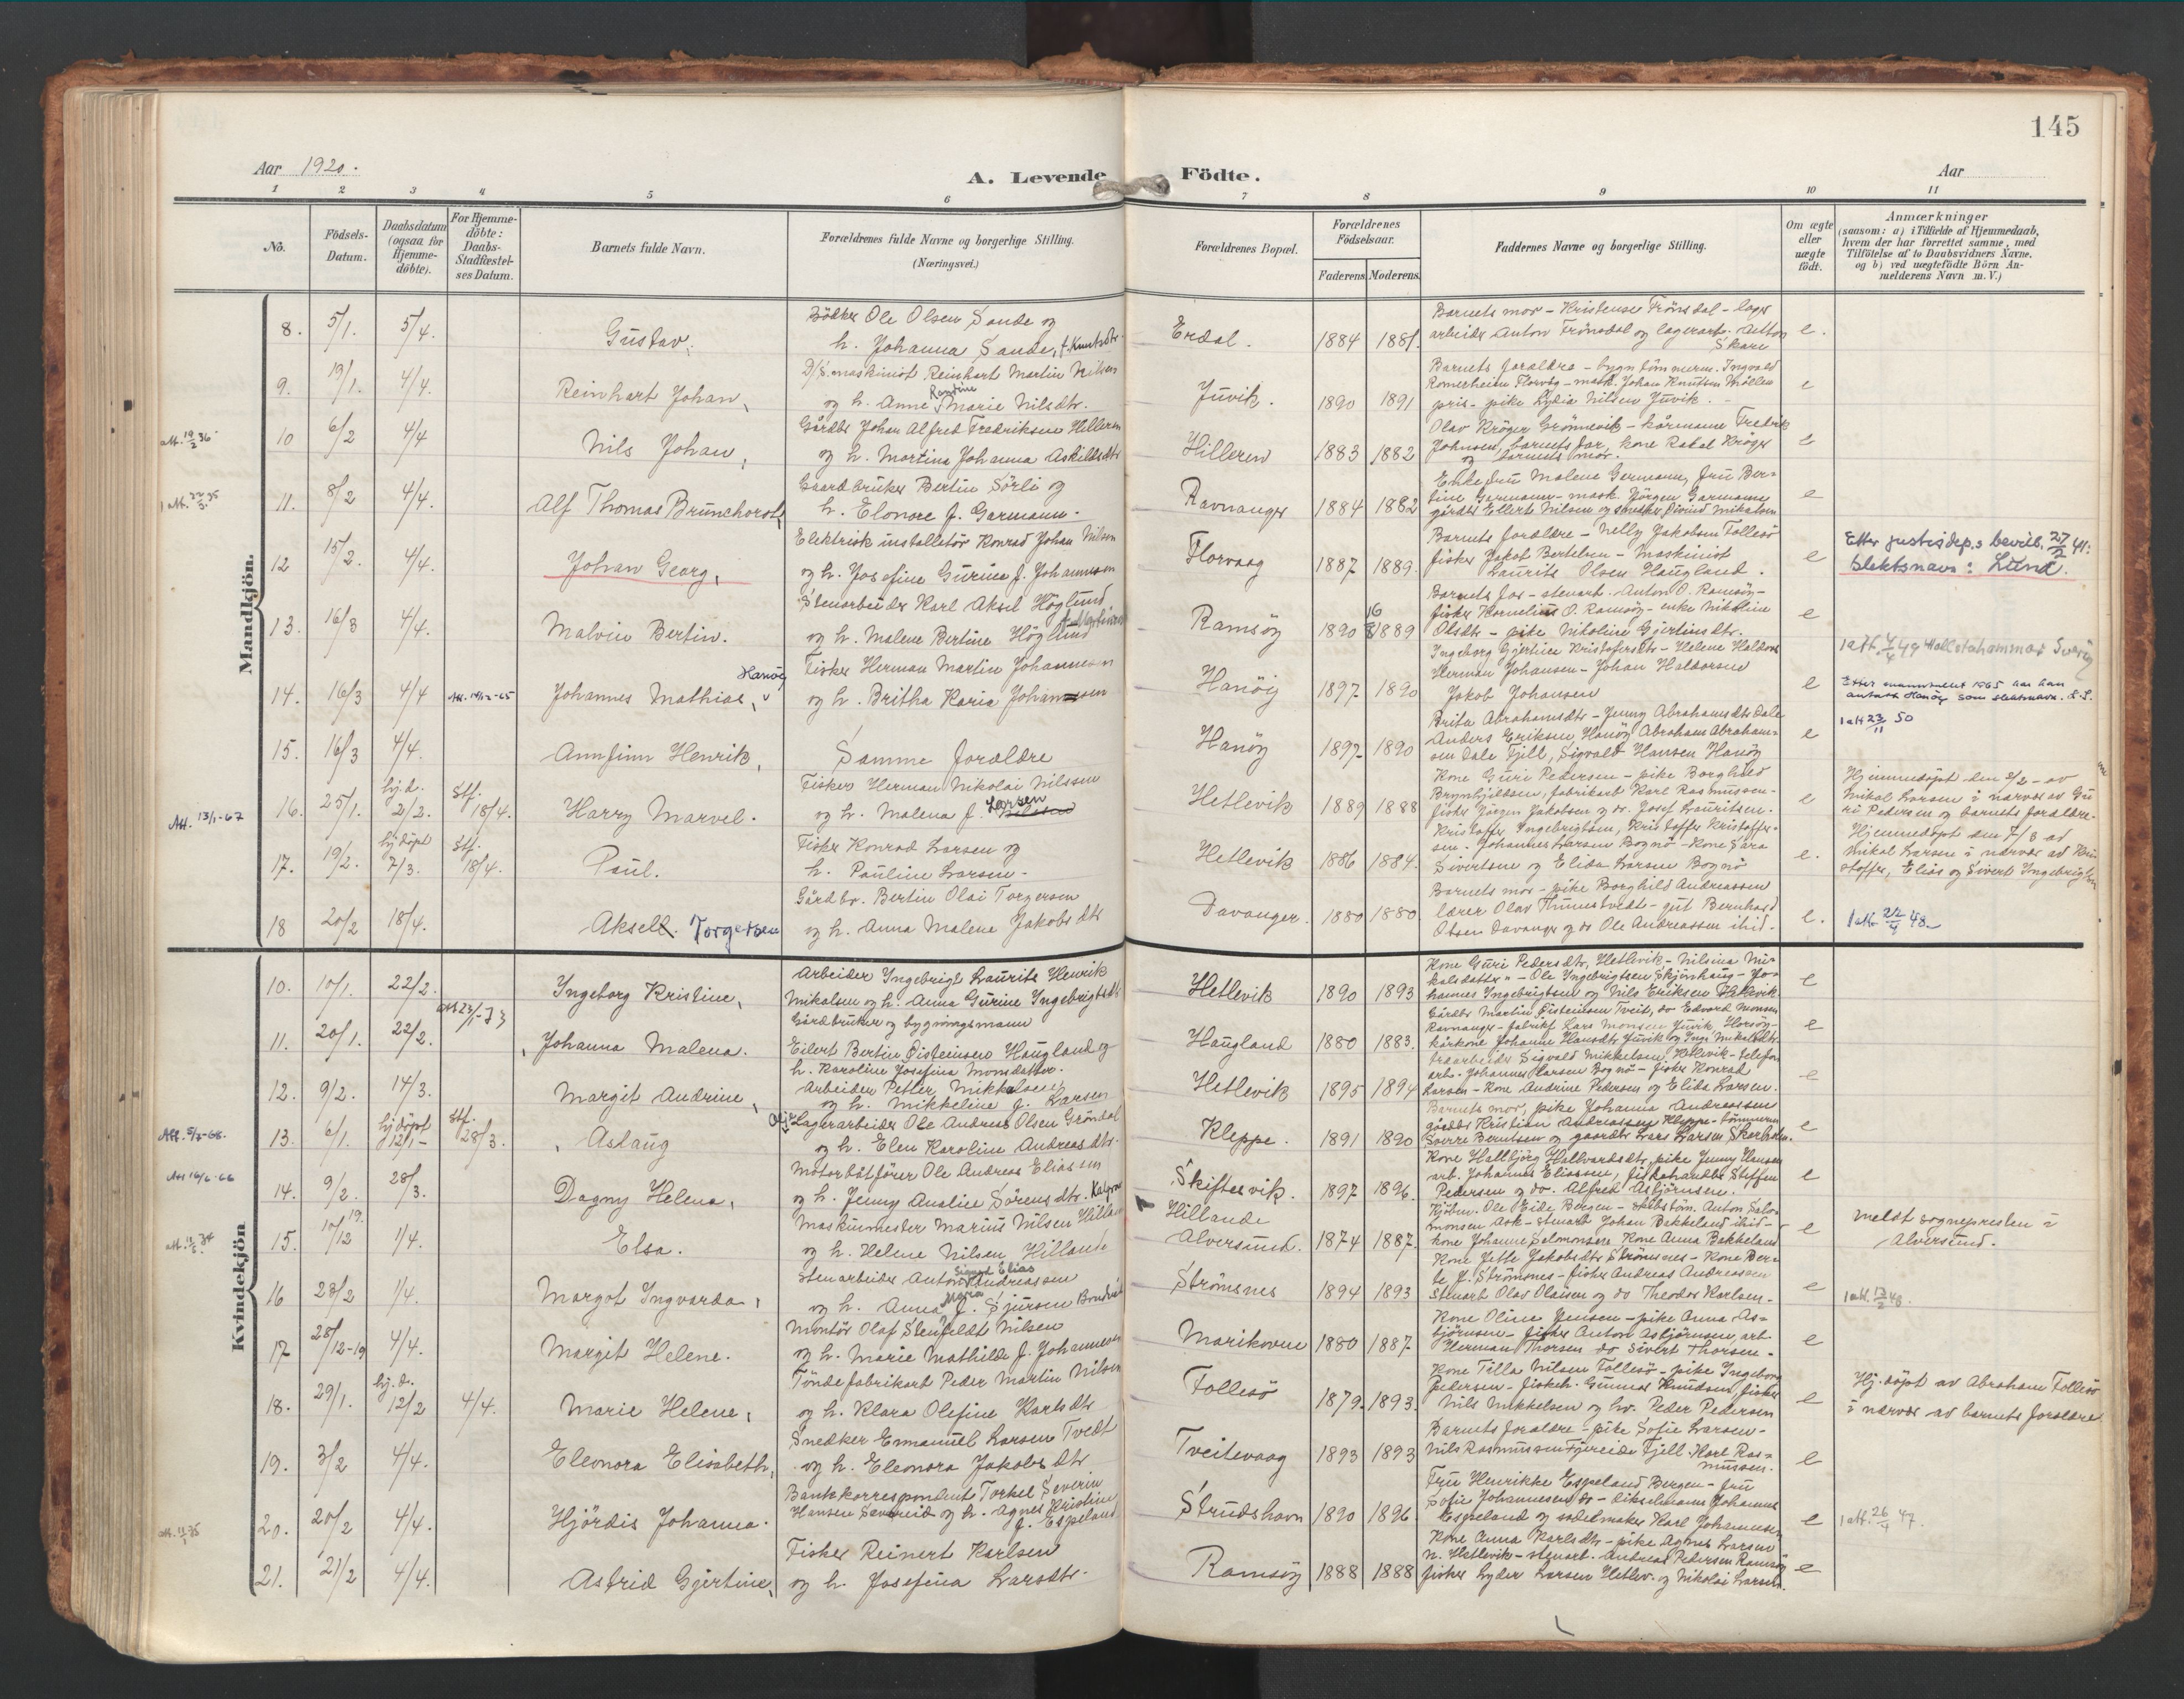 145
Aar 1920.
A. Levende Födte.
Aar
1 2 3 4 5 6 7 8 9 10 11
No.
Födsels-Datum.
Daabsdatum (ogsaa for Hjemme-döbte).
For Hjemme-döbte: Daabs-Stadfæstel-ses Datum.
Barnets fulde Navn.
Forældrenes fulde Navne og borgerlige Stilling. (Næringsvei.)
Forældrenes Bopæl.
Forældrenes Födselsaar.
Faderens. Moderens.
Faddernes Navne og borgerlige Stilling.
Om ægte eller uægte födt.
Anmærkninger (saasom: a) i Tilfælde af Hjemmedaab, hvem der har forrettet samme, med Tilföielse af to Daabsvidners Navne, og b) ved uægtefödte Börn An-melderens Navn m. V.)
Mandkjön.
8. 5/1. 5/4. Gustav,
Bödker Ole Olsen Sande og
h. Johanna Sande, f. Knutsdtr.
Erdal. 1884 1881.
Barnets mor - Kristense Trönsdal - lager
arbeider Anton Trönsdal og lagerarb. Anton
Skare
e.
9. 19/1. 4/4. Reinhart Johan,
D/S. maskinist Reinhart Martin Nilsen
og h. Anne Marie Nilsdtr.
Juvik. 1890 1891
Barnets foraldre - bygn tömmerm. Ingvald
Romerheim Florvåg - mask. Johan Knutsen Möllen
pris - pike Lydia Nilsen Juvik. -
e
10 6/2 4/4 Nils Johan,
Gårdbr Johan Alfred Fredriksen Hilleren
og h. Martina Johanna Askildsdtr
Hilleren 1883 1882
Olav Kröger Grönnevik - kårmann Fredrik
Johnsen, barnets far, kone Rakel Kröger
og barnets mor.
e
11. 8/2 4/4. Alf Thomas Brunchorst,
Gaardbruker Bertin Sörli og
h. Elonore f. Garmann -
Ravnanger 1884 1882
Enkefru Malene Germann, fru Ber-
tine Garmann - mask. Jörgen Garmann
gårdbr Ellert Nilsen og snedker Öivind Mikalsen
e
12 15/2. 4/4. Johan Georg,
Elektrisk installetör Konrad Johan Nilsen
og h. Josefine Gurine f. Johannesen
Florvaag 1887 1889.
Barnets foraldre - Nelly Jakobsen Follesö
fisker Jakob Bertelsen - maskinist
Laurits Olsen Haugland.
e
Etter justisdep.s bevilb. 27/2 41:
slektsnavn: Lund.
13. 16/3 4/4. Malvin Bertin.
Stenarbeider Karl Aksel Höglund
og h. Malene Bertine Höglund
Ramsöy 1890 1889
Barnets far - stenarb. Anton O. Ramsöy -
fisker Kornelius O. Ramsöy - enke Nikoline
Olsdtr - pike Nikoline Gjertinsdtr.
e
1 att. 4/4 49 Hallstahammar Sverig
14. 16/3 4/4 Johannes Mathias, Hanöy
Fisker Herman Martin Johannesen
og h. Britha Karia Johannssen
Hanöig 1897 1890
Ingeborg Gjertine Kristofersdtr - Helene Haldors
Herman Johansen - Johan Haldorsen
Jakob Johansen
e
15. 16/3 4/4. Annfinn Henrik,
Samme foraldre
Hanöy 1897 1890
Brita Abrahamsdtr - Jenny Abrahamsdtr Dale
Anders Eriksen Hanöy Abraham Abraham-
sen Dale Fjell, Sigvald Hansen Hanöy
e
1 att 23/11 50
16. 25/1. hj.d. 2/2. Stf. 18/4. Harry Marvel.
Fisker Herman Nikolai Nilssen
og h. Malena f. Larsen
Hetlevik 1889 1888
Kone Guri Pedersen - pike Borghild
Brynhjildsen, fabrikarb Karl Rasmussen -
fisker Jörgen Jakobsen og do. Josef Lauritsen.
e
Hjemmedöpt den 2/2 - av
Mikal Larsen i nærvær av Gu
ri Pedersen og barnets foraldre.
Att. 13/1-67
17. 19/2. hj döpt 7/3. Stf. 18/4. Paul.
Fisker Konrad Larsen og
h. Pauline Larsen -
Hetlevik 1886 1884.
Kristoffer Ingebrigtsen, Kristoffer Kristoffer-
sen - Johannes Larsen Bognö - Kone Sara
Sivertsen og Elida Larsen Bognö
e.
Hjemmedöpt den 7/3 av
Mikal Larsen i nærvær av Kri
stoffer, Elias og Sivert Ingebrigtsen
18 20/2 18/4. Aksel. Torgersen
Gårdbr. Bertin Olai Torgersen
og h. Anna Malene Jakobsdtr
Davanger. 1880 1880.
Barnets mor - pike Borghild Andreassen
lærer Olav Thunestvedt - gut Bernhard
Olsen Davanger og do Ole Andreassen ibid.
e.
1 att. 22/4 48.
Kvindekjön
10. 10/1. 22/2. Ingeborg Kristine,
Arbeider Ingebrigt Laurits Henrik
Nikolsen og h. Anna Gurine Ingebrigtsdtr
Hetlevik 1890 1893
Kone Guri Pedersdtr, Hetlevik - Nilsina Ni-
kolsdatter " - Ole Ingebrigtsen Skjönhaug - Jo-
hannes Ingebrigtsen og Nils Eriksen Hetlevik.
e
11. 20/1. 22/2. Johanna Malena.
Gårdbruker og bygningsmann
Eilert Bertin Öisteinsen Haugland og
h. Karoline Josefina Monsdatter.
Haugland 1880 1883.
Gårdbr Martin Öisteinsen Tveit, do Edvard Monsen
Ravnanger - fabrikf Lars Monsen Juvik, Horsöy -
kårkone Johanne Hansdtr Juvik og Inga Mikalsdtr.
e
12. 9/2. 14/3. Margit Andrine,
Arbeider Petter Mikkelsen
og h. Mikkeline f. Larsen
Hetlevik 1895 1894
traarbeider Sigvald Mikkelsen, Hetlevik - telefon
arb. Johannes Larsen Bognö - fisker Konrad
Larsen - Kone Andrine Pedersen og Elida Larsen.
e
13. 6/1. hj döpt 12/1- Stf. 28/3. Aslaug
Lagerarbeider Ole Andreas Olsen Gröndal
og h. Elen Karoline Andreasdtr.
Kleppe. 1891 1890
Barnets mor, pike Johanna Andreassen
gårdbr Kristian Andreassen Kleppe - tömmerm
Sverre Berntsen og gaardbr Lars Larsen Skarholm.
e
14. 9/2. 28/3. Dagny Helena,
Motorbåtförer Ole Andreas Eliassen
og h. Jenny Analise Sörensdtr.
Skiftesvik. 1897 1896.
Kone Hallbjörg Hallvardsdtr, pike Jenny Hansen
arb. Johannes Eliassen, fiskehandler Steffen
Pedersen og do. Alfred Asbjörnsen.
e
15. 10/12 19. 1/4. Elsa.
Maskinmester Marius Nilsen Hilland
og h. Helene Nilsen Hillande
Hillande
Alversund. 1874 1887.
Kjöbm. Ole Eide Bergen - skibstöm. Anton Salo-
monsen Ask - stenarb Johan Bakkeland ibid -
kone Johanne Salomonsen Kone Anna Bakkeland
e
meldt sognepresten i
Alversund.
16 28/2 1/4. Margot Ingvarda,
Stenarbeider Anton Sigurd Elias Andreassen
og h. Anna Maria f. Sjursen
Strömsnes 1894 1893
Kone Jette Jakobsdtr Strömsnes - Kone Ber-
te J. Strömsnes - fisker Andreas Andreassen
stenarb Olav Olaisen og do Theodor Karlsen -
e
1 att. 13/2 48.
17 28/12-19 4/4. Margit Helene.
Montör Olaf Stenfeldt Nilsen
og h. Marie Mathilde f. Johannesen
Marikoven 1880 1887.
Kone Oline Jensen - pike Anna As-
björnsen - fisker Anton Asbjörnsen, arb.
Herman Thorsen do Sivert Thorsen -
e
18. 29/1. hj.d. 12/2 4/4. Marie Helene,
Töndefabrikarb Peder Martin Nilsen
og h. Klara Olefine Karlsdtr
Follesö 1879. 1893.
Kone Tilla Nilsen Follesö - pike Ingeborg
Pedersen - fiskeh. Gunnar Knudsen, fisker
Nils Mikkelsen og hv. Peder Pedersen
e
Hj. döpt av Abraham Follesö
i nærvær av barnets foraldre
19. 3/2 4/4. Eleonora Elisabeth,
Snedker Emanuel Larsen Tvedt
og h. Eleonora Jakobsdtr
Tveitevaag 1893 1893
Barnets foraldre - pike Sofie Larsen -
Nils Rasmussen Fjereide Fjell. Karl Ras-
mussen.
e
20. 20/2 4/4. Hjördis Johanna.
Bankkorrespondent Torkel Severin
Hansen Sævereid og h. Agnes Kristine
f. Espeland
Strudshavn 1890 1896.
Fru Henrikke Espeland Bergen - fru
Sofie Johannesen do - dikselmann Johannes
Espeland og sadelmaker Karl Johannesen
e
1 att. 26/4 47.
21. 21/2 4/4. Astrid Gjertine,
Fisker Reinert Karlsen
og h. Josefina Larsdtr.
Ramsöy 1888 1888
Kone Anna Karlsdtr - pike Agnes Larsen
n. Hetlevik - stenarb. Andreas Pedersen Ramsöy
fisker Lyder Larsen Hetlev. og Nikolai Larsen.
e